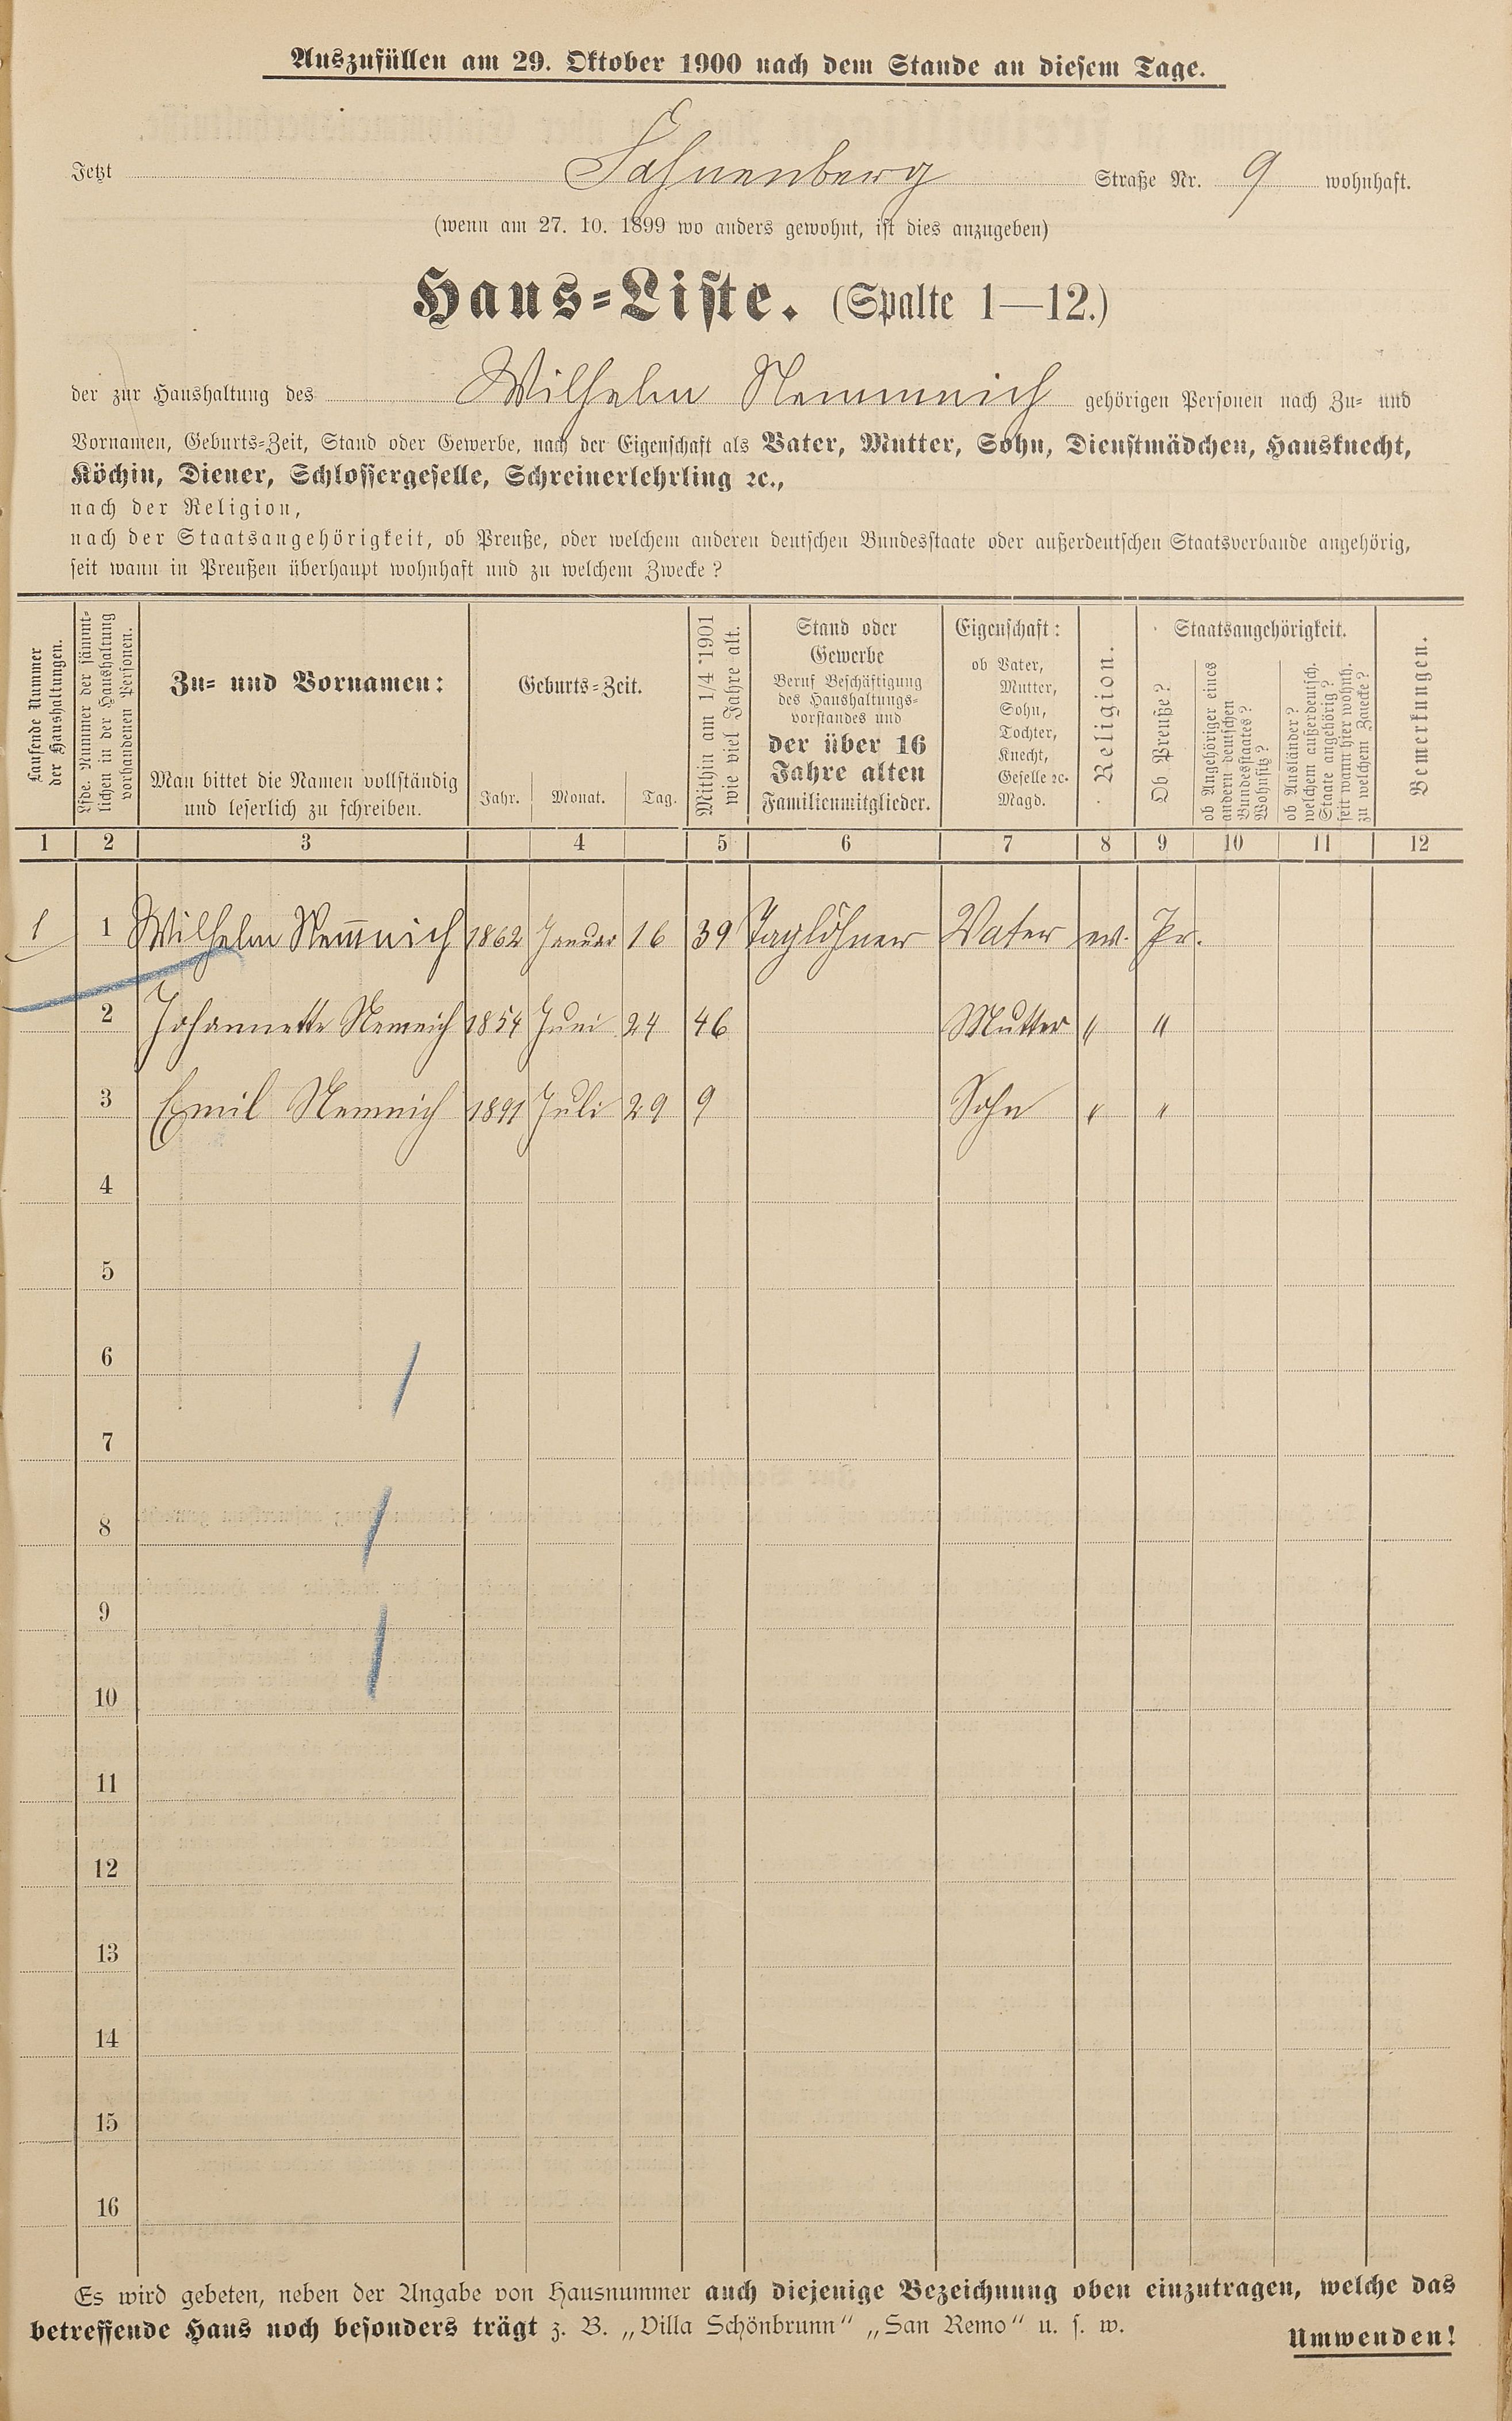 Auszufüllen am 29. Oktober 1900 nach dem Stande an diesem Tage.
Jetzt Hahnenberg Straße Nr. 9 wohnhaft.
(wenn am 27. 10. 1899 wo anders gewohnt, ist dies anzugeben)
Haus-Liste. (Spalte 1—12.)
der zur Haushaltung des Wilhelm Nemmnich gehörigen Personen nach Zu- und
Vornamen, Geburts-Zeit, Stand oder Gewerbe, nach der Eigenschaft als Vater, Mutter, Sohn, Dienstmädchen, Hausknecht,
Köchin, Diener, Schlossergeselle, Schreinerlehrling ꝛc.,
nach der Religion,
nach der Staatsangehörigkeit, ob Preuße, oder welchem anderen deutschen Bundesstaate oder außerdeutschen Staatsverbande angehörig,
seit wann in Preußen überhaupt wohnhaft und zu welchem Zwecke?
Laufende Nummer
der Haushaltungen.
Lfde. Nummer der sämmt-
lichen in der Haushaltung
vorhandenen Personen.
Zu- und Vornamen:
Man bittet die Namen vollständig
und leserlich zu schreiben.
Geburts-Zeit.
Jahr. Monat. Tag.
Mithin am 1/4 1901
wie viel Jahre alt.
Stand oder
Gewerbe
Beruf Beschäftigung
des Haushaltungs-
vorstandes und
der über 16
Jahre alten
Familienmitglieder.
Eigenschaft:
ob Vater,
Mutter,
Sohn,
Tochter,
Knecht,
Geselle ꝛc.
Magd.
Religion.
Staatsangehörigkeit.
Ob Preuße?
ob Angehöriger eines
andern deutschen
Bundesstaates?
Wohnsitz?
ob Ausländer?
welchem außerdeutsch.
Staate angehörig?
seit wann hier wohnh.
zu welchem Zwecke?
Bemerkungen.
1 2 3 4 5 6 7 8 9 10 11 12
1 1 Wilhelm Nem̅nich 1862 Januar 16 39 Taglöhner Vater ev. Pr.
2 Johannette Nemnich 1854 Juni 24 46 Mutter " "
3 Emil Nemnich 1891 Juli 29 9 Sohn " "
4
5
6
7
8
9
10
11
12
13
14
15
16
Es wird gebeten, neben der Angabe von Hausnummer auch diejenige Bezeichnung oben einzutragen, welche das
betreffende Haus noch besonders trägt z. B. „Villa Schönbrunn" „San Remo" u. s. w.
Umwenden!